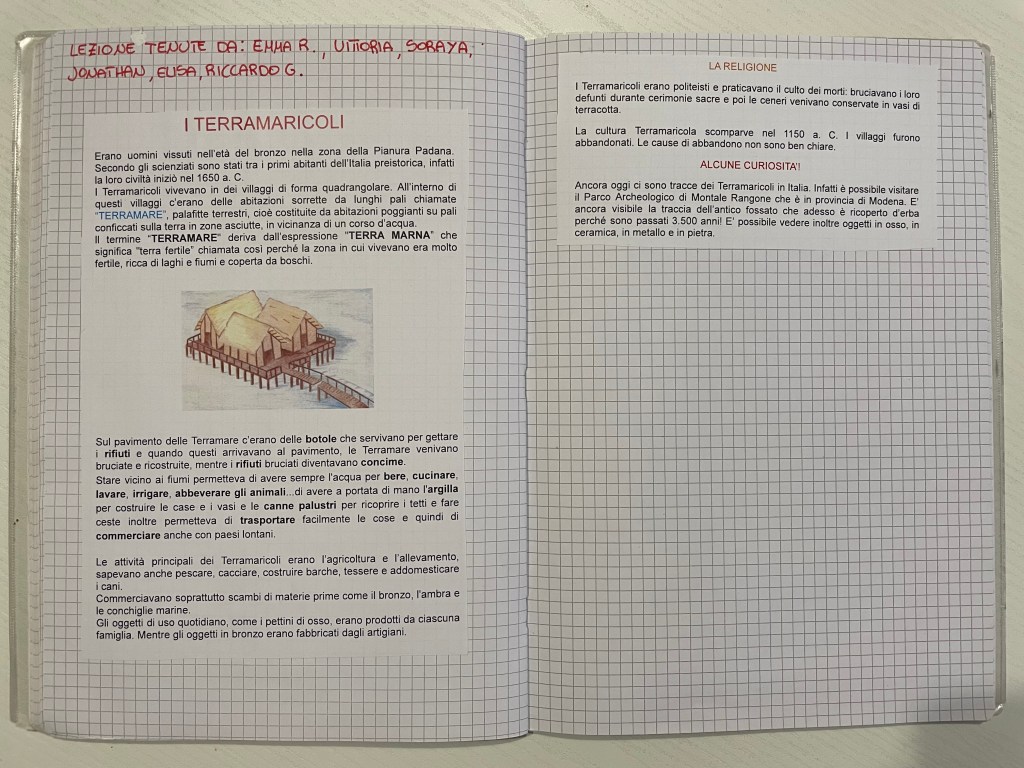 LEZIONE TENUTE DA: EMMA R., VITTORIA, SORAYA,
JONATHAN, ELISA, RICCARDO G.
I TERRAMARICOLI
Erano uomini vissuti nell'età del bronzo nella zona della Pianura Padana.
Secondo gli scienziati sono stati tra i primi abitanti dell'Italia preistorica, infatti
la loro civiltà iniziò nel 1650 a. C.
I Terramaricoli vivevano in dei villaggi di forma quadrangolare. All'interno di
questi villaggi c'erano delle abitazioni sorrette da lunghi pali chiamate
"TERRAMARE", palafitte terrestri, cioè costituite da abitazioni poggianti su pali
conficcati sulla terra in zone asciutte, in vicinanza di un corso d'acqua.
Il termine "TERRAMARE" deriva dall'espressione "TERRA MARNA" che
significa "terra fertile" chiamata così perché la zona in cui vivevano era molto
fertile, ricca di laghi e fiumi e coperta da boschi.
Sul pavimento delle Terramare c'erano delle botole che servivano per gettare
i rifiuti e quando questi arrivavano al pavimento, le Terramare venivano
bruciate e ricostruite, mentre i rifiuti bruciati diventavano concime.
Stare vicino ai fiumi permetteva di avere sempre l'acqua per bere, cucinare,
lavare, irrigare, abbeverare gli animali...di avere a portata di mano l'argilla
per costruire le case e i vasi e le canne palustri per ricoprire i tetti e fare
ceste inoltre permetteva di trasportare facilmente le cose e quindi di
commerciare anche con paesi lontani.
Le attività principali dei Terramaricoli erano l'agricoltura e l'allevamento,
sapevano anche pescare, cacciare, costruire barche, tessere e addomesticare
i cani.
Commerciavano soprattutto scambi di materie prime come il bronzo, l'ambra e
le conchiglie marine.
Gli oggetti di uso quotidiano, come i pettini di osso, erano prodotti da ciascuna
famiglia. Mentre gli oggetti in bronzo erano fabbricati dagli artigiani.
LA RELIGIONE
I Terramaricoli erano politeisti e praticavano il culto dei morti: bruciavano i loro
defunti durante cerimonie sacre e poi le ceneri venivano conservate in vasi di
terracotta.
La cultura Terramaricola scomparve nel 1150 a. C. I villaggi furono
abbandonati. Le cause di abbandono non sono ben chiare.
ALCUNE CURIOSITA'!
Ancora oggi ci sono tracce dei Terramaricoli in Italia. Infatti è possibile visitare
il Parco Archeologico di Montale Rangone che è in provincia di Modena. E'
ancora visibile la traccia dell'antico fossato che adesso è ricoperto d'erba
perché sono passati 3.500 anni! E' possibile vedere inoltre oggetti in osso, in
ceramica, in metallo e in pietra.